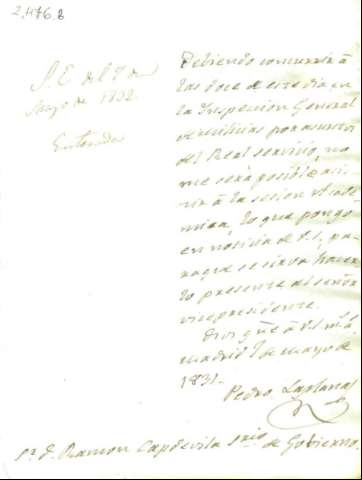 2,476.8
S. E. del 7 de
Mayo de 1832.
Enterado
Debiendo concurrir à
las doce de este dia en
la Inspeccion General
de milicias por asunto
del Real servicio, no
me será posible asis-
tir à la sesion
lo que pongo
en noticia de V.S. pa-
ra que se sirva hacer-
lo presente al señor
vicepresidente.
Dios gũe à V.S. m.s a.s
Madrid 7 de mayo de
1831.
Pedro Laplana
S.r d. Ramon Capdevila srio de Gobierno.